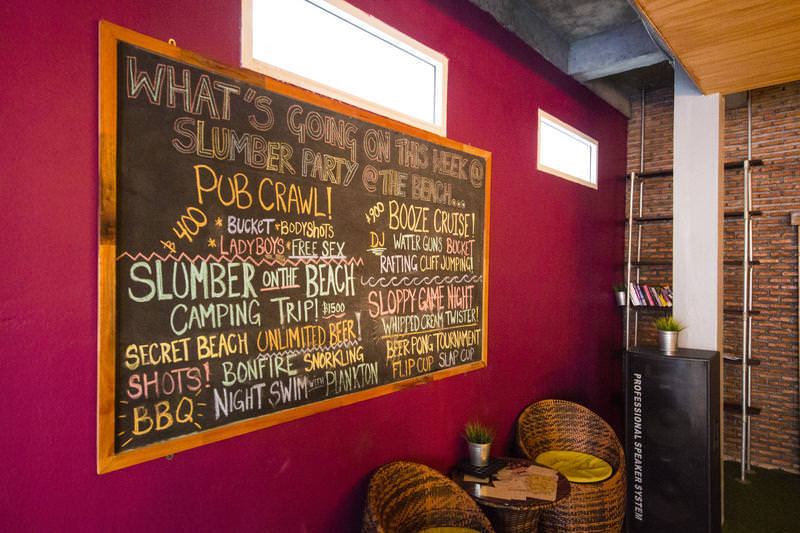 WHAT'S GOING ON THIS WEEK @
SLUMBER PARTY @ THE BEACH...
PUB CRAWL!
฿400
* BUCKET * BODYSHOTS
* LADYBOYS * FREE SEX
฿900 BOOZE CRUISE!
DJ WATER GUNS BUCKET
RAFTING CLIFF JUMPING!
SLUMBER ON THE BEACH
CAMPING TRIP! ฿1500
SECRET BEACH UNLIMITED BEER!
SHOTS! BONFIRE SNORKLING
BBQ NIGHT SWIM WITH PLANKTON
SLOPPY GAME NIGHT
WHIPPED CREAM TWISTER!
BEER PONG TOURNAMENT
FLIP CUP SLAP CUP
PROFESSIONAL SPEAKER SYSTEM